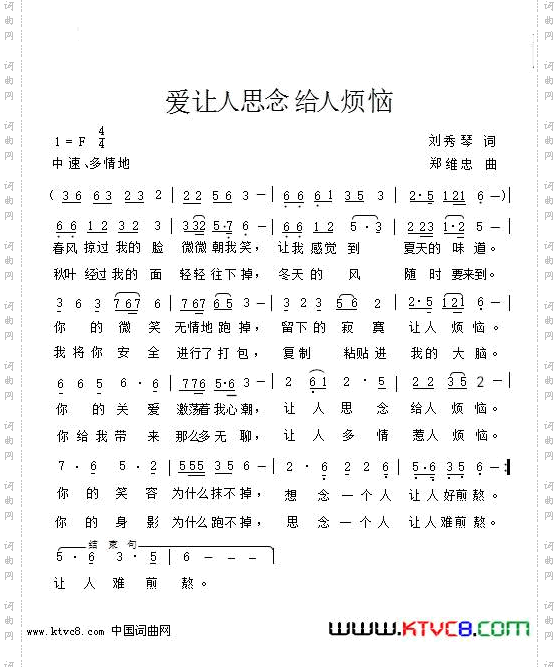 爱让人思念给人烦恼
1 = F 4/4
刘秀琴 词
中速、多情地
郑维忠 曲
( 3 6 6 3 2 3 2 | 2 2 5 6 3 - | 6 6 6 1 3 5 3 | 2 · 5 1 2 1 6 - )
6 6 1 2 3 2 3 | 3 3 2 5 · 7 6 - | 6 6 1 2 5 · 3 | 2 2 3 1 · 2 2 -
春风掠过我的脸 微微朝我笑，让我感觉到 夏天的味道。
秋叶经过我的面 轻轻往下掉，冬天的风 随时要来到。
3 6 3 7 6 7 6 | 7 7 6 7 6 5 3 - | 3 2 2 3 5 6 2 | 2 · 5 1 2 1 6 -
你的微笑 无情地跑掉，留下的寂寞 让人烦恼。
我将你安全 进行了打包，复制粘贴进 我的大脑。
6 6 5 6 6 · 6 | 7 7 6 5 · 6 3 - | 2 6 1 2 · 5 | 2 2 2 3 5 2 -
你的关爱 激荡着我心潮，让人思念 给人烦恼。
你给我带来 那么多无聊，让人多情 惹人烦恼。
7 · 6 5 · 2 | 5 5 5 3 5 3 - | 2 · 6 2 2 6 | 5 · 6 3 5 6 -
你的笑容 为什么抹不掉，想念一个人 让人好煎熬。
你的身影 为什么跑不掉，思念一个人 让人难煎熬。
结束句
5 · 6 3 · 5 | 6 - - -
让人难煎熬。
www.ktvc8.com 中国词曲网
WWW.KTVC8.COM
词曲网